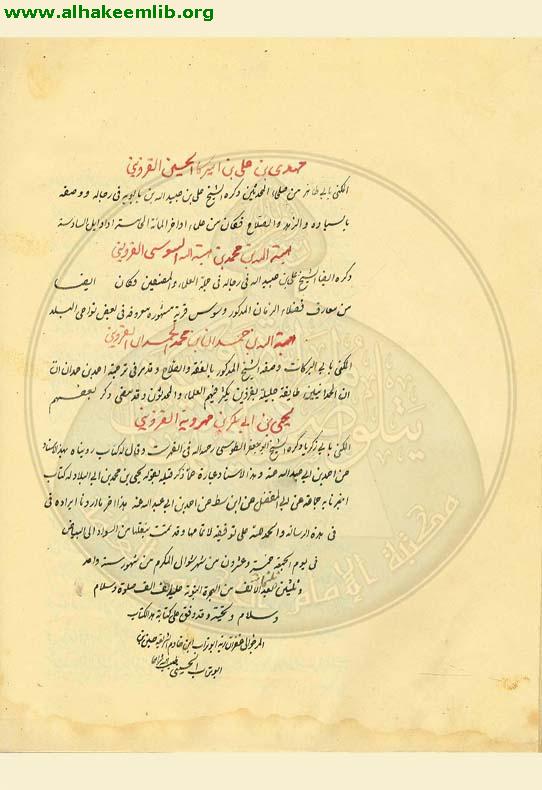 www.alhakeemlib.org
مهدى بن على بن اميركا الحسينى القزوينى
المكنى بابى طاهر من صلحاء المحدثين ذكره الشيخ على بن عبيد الله بن بابويه فى رجاله ووصفه
بالسياده والزهد والصلاح فكان من علماء اواخر المائة الخامسة او اوايل السادسة
هبة الله بن محمد بن هبة الله السوسى القزوينى
ذكره ايضا الشيخ على بن عبيد الله فى رجاله فى جملة العلماء والمصنفين وكان ايضا
من معارف فضلاء الزمان المذكور وسوس قرية مشهورة معروفة فى بعض نواحى البلد
هبة الله بن حمدان بن محمد الحمدانى القزوينى
المكنى بابى البركات وصفه الشيخ المذكور بالفقه والصلاح وقد مر فى ترجمة احمد بن حمدان
ان الحمدانيين طايفة جليلة بقزوين يكثر فيهم العلماء والمحدثون وقد مضى ذكر بعضهم
يحيى بن ابى بكر بن مهرويه القزوينى
المكنى بابى زكريا ذكره الشيخ ابو جعفر الطوسى رحمه الله فى الفهرست وقال له كتاب رويناه بهذا الاسناد
عن احمد بن ابى عبد الله عنه وهذا الاسناد عبارة عما ذكر قبله بقوله يحيى بن محمد بن ابى البلاد له كتاب
اخبرنا به جماعة عن ابى المفضل عن ابن بطه عن احمد بن ابى عبد الله عنه هذا اخر ما اردنا ايراده فى
هذه الرسالة والحمد لله على توفيقه لاتمامها وقد تمت بنقلها من السواد الى البياض
فى يوم الجمعة خمسة وعشرون من شهر شوال المكرم من شهور سنة واحد
وثلثين بعد الالف من الهجرة النبوية عليه الف الف صلوة وسلام
وسلام وتحية وقد وفق على كتابة هذا الكتاب
ابو تراب ابن خادم
ابو تراب الحسينى